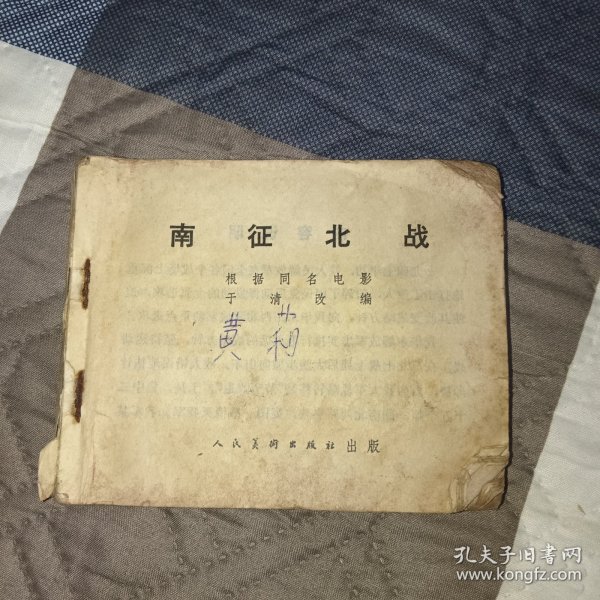 南征北战
根据同名电影
于清改编
黄莉
人民美术出版社出版
孔夫子旧书网
www.kongfz.com